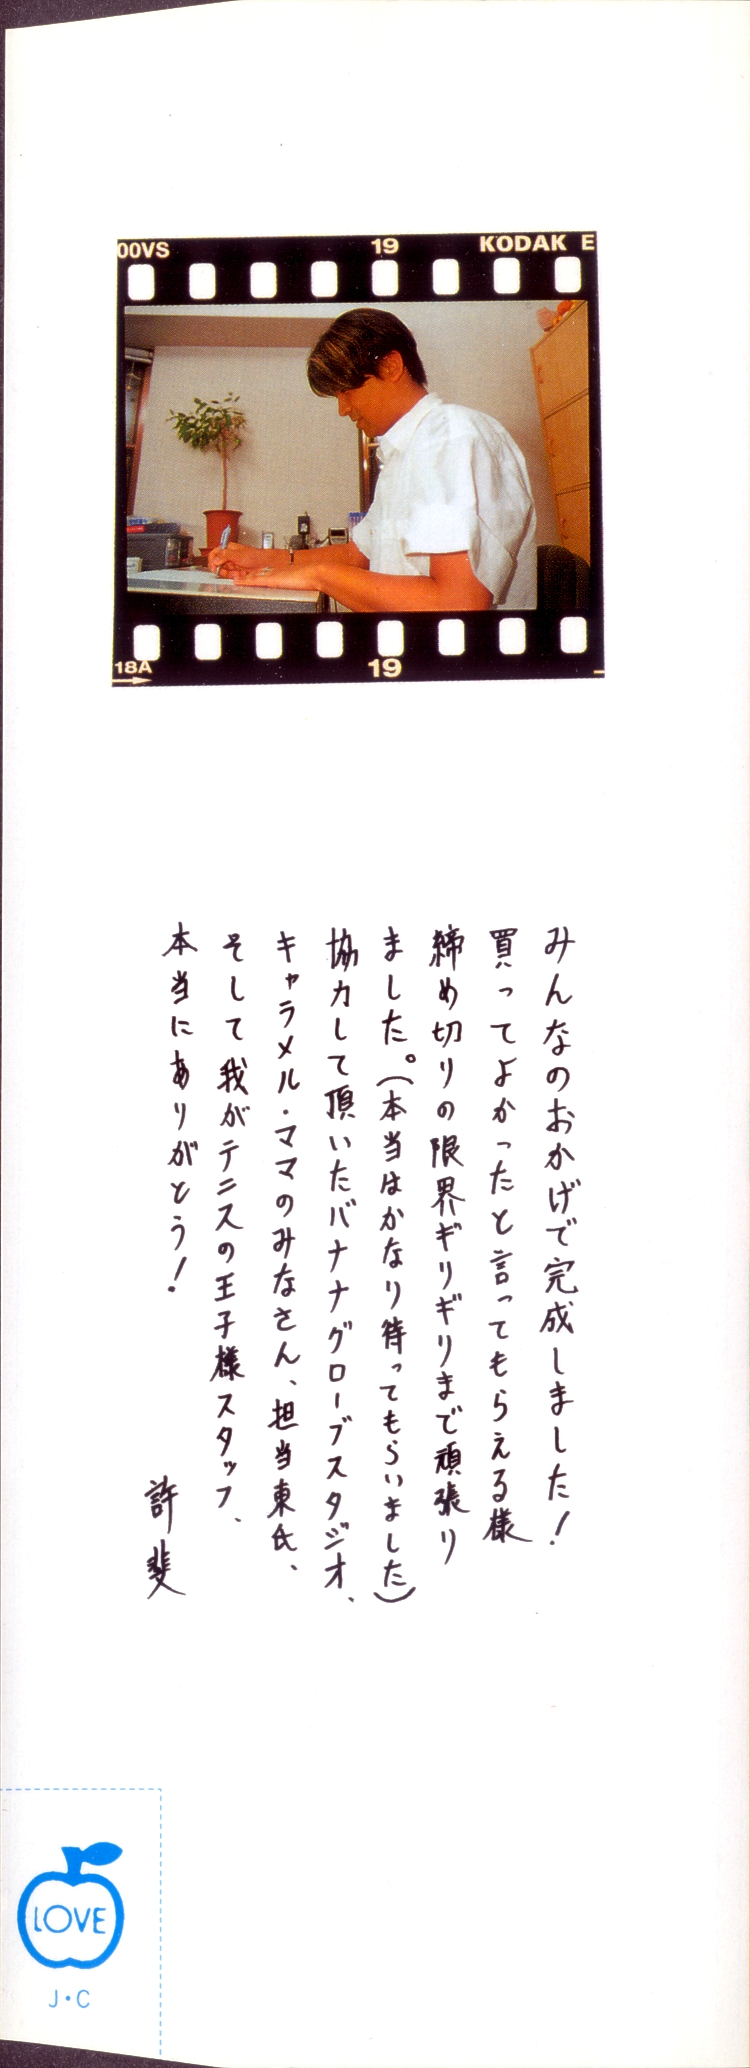 00VS 19 KODAK E
18A 19
みんなのおかげで完成しました!
買ってよかったと言ってもらえる様
締め切りの限界ギリギリまで頑張り
ました。(本当はかなり待ってもらいました)
協力して頂いたバナナグローブスタジオ、
キャラメル・ママのみなさん、担当東氏、
そして我がテニスの王子様スタッフ、
本当にありがとう!
許斐
LOVE
J・C